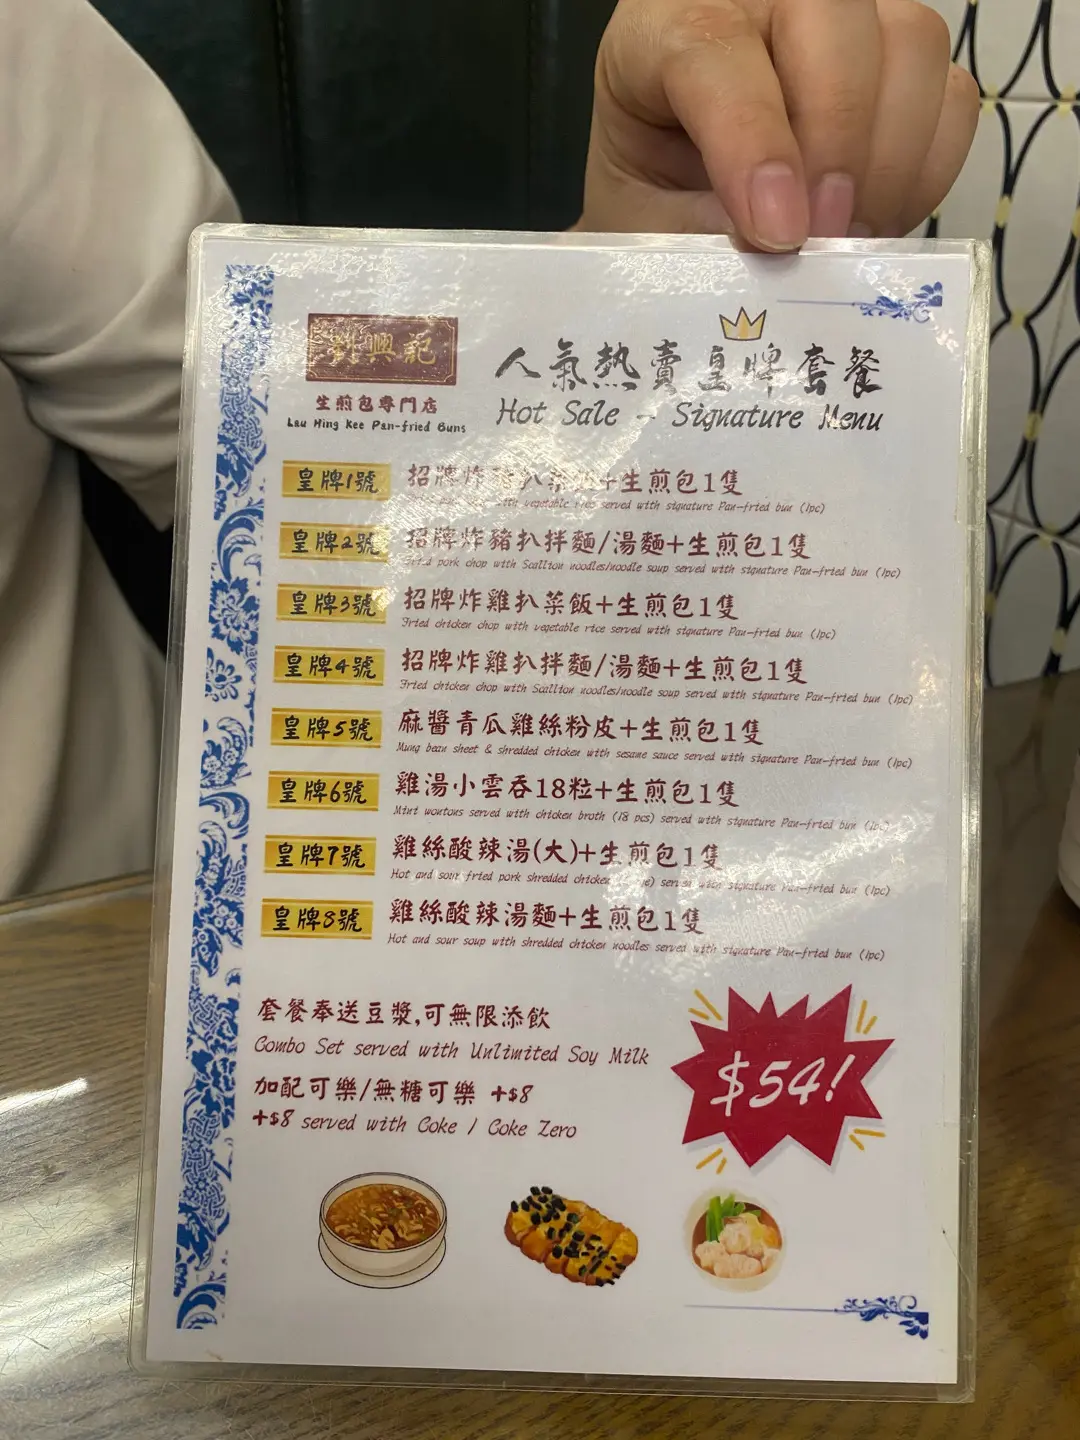 劉興記
生煎包專門店
Lau Hing Kee Pan-fried Buns
人氣熱賣皇牌套餐
Hot Sale - Signature Menu
皇牌1號 招牌炸豬扒菜飯+生煎包1隻
with vegetable rice served with signature Pan-fried bun (1pc)
皇牌2號 招牌炸豬扒拌麵/湯麵+生煎包1隻
Fried pork chop with Scallion noodles/noodle soup served with signature Pan-fried bun (1pc)
皇牌3號 招牌炸雞扒菜飯+生煎包1隻
Fried chicken chop with vegetable rice served with signature Pan-fried bun (1pc)
皇牌4號 招牌炸雞扒拌麵/湯麵+生煎包1隻
Fried chicken chop with Scallion noodles/noodle soup served with signature Pan-fried bun (1pc)
皇牌5號 麻醬青瓜雞絲粉皮+生煎包1隻
Mung bean sheet & shredded chicken with sesame sauce served with signature Pan-fried bun (1pc)
皇牌6號 雞湯小雲吞18粒+生煎包1隻
Mini wontons served with chicken broth (18 pcs) served with signature Pan-fried bun (1pc)
皇牌7號 雞絲酸辣湯(大)+生煎包1隻
Hot and sour fried pork shredded chicken served with signature Pan-fried bun (1pc)
皇牌8號 雞絲酸辣湯麵+生煎包1隻
Hot and sour soup with shredded chicken noodles served with signature Pan-fried bun (1pc)
套餐奉送豆漿,可無限添飲
Combo Set served with Unlimited Soy Milk
加配可樂/無糖可樂 +$8
+$8 served with Coke / Coke Zero
$54!